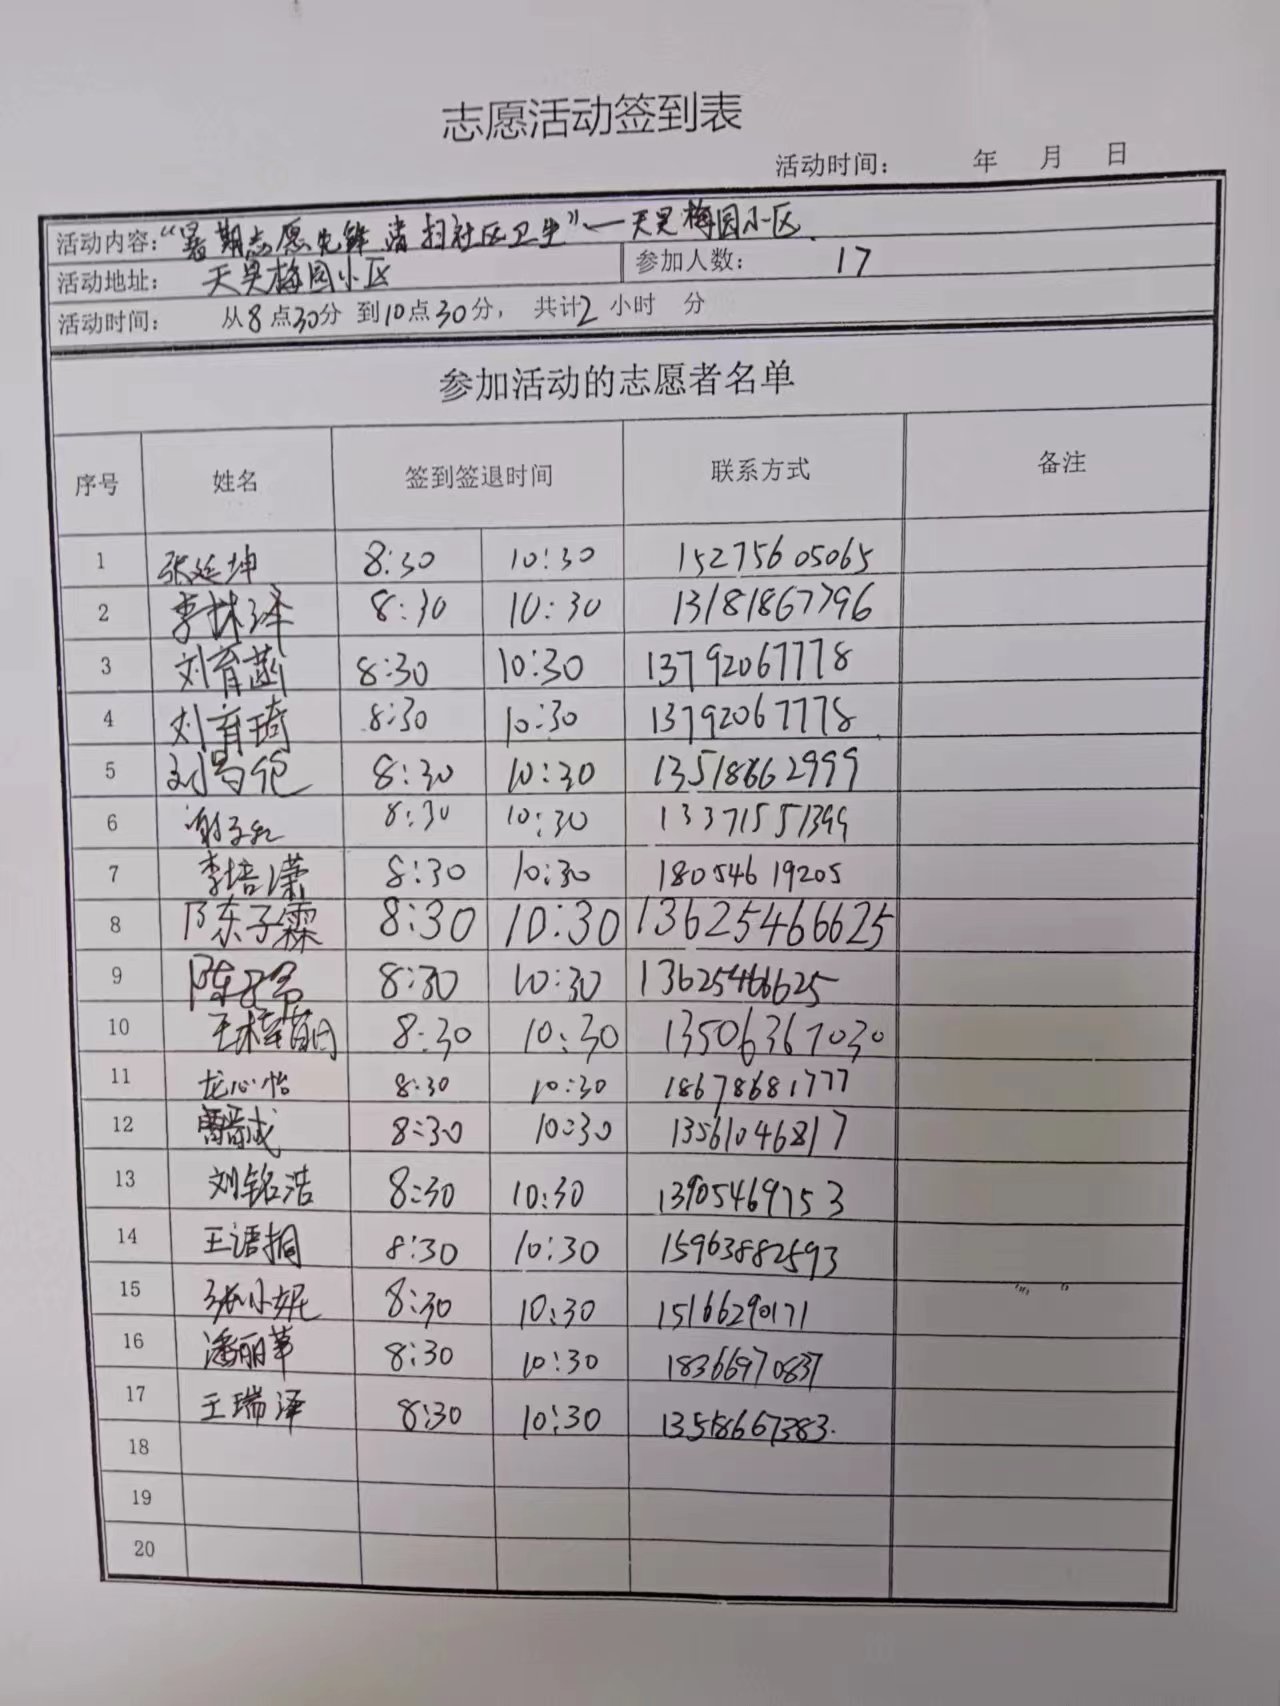 志愿活动签到表
活动时间： 年 月 日
活动内容：“暑期志愿先锋 清扫社区卫生”—天昊梅园小区
活动地址： 天昊梅园小区 参加人数： 17
活动时间： 从8点30分 到10点30分， 共计2小时 分
参加活动的志愿者名单
序号 姓名 签到签退时间 联系方式 备注
1 张延坤 8:30 10:30 15275605065
2 李林泽 8:30 10:30 13181867796
3 刘育菡 8:30 10:30 13792067778
4 刘育琦 8:30 10:30 13792067778
5 8:30 10:30 13518662999
6 8:30 10:30 13371551399
7 李培潇 8:30 10:30 18054619205
8 陈子霖 8:30 10:30 13625466625
9 8:30 10:30 13625466625
10 8:30 10:30 13506367030
11 龙心怡 8:30 10:30 18678681777
12 8:30 10:30 13561046817
13 刘铭浩 8:30 10:30 13905469753
14 王语桐 8:30 10:30 15963882593
15 张小妮 8:30 10:30 15166290171
16 潘丽苹 8:30 10:30 18366970837
17 王瑞泽 8:30 10:30 13518667383.
18
19
20